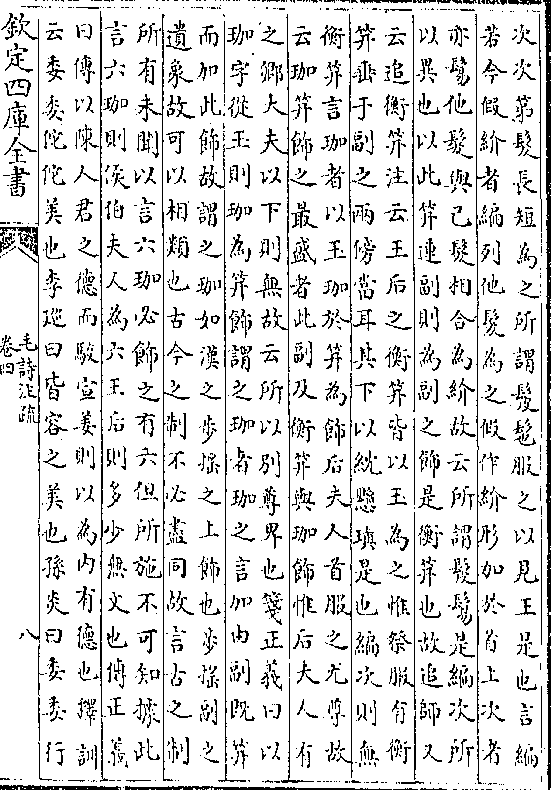 次次第髮長短為之所謂髲髢服之以見王是也言編
若今假紒者編列他髮為之假作紒形加於首上次者
亦鬄他髮與己髮相合為紒故云所謂髲鬄是編次所
以異也以此笄連副則為副之飾是衡笄也故追師又
云追衡笄注云王后之衡笄皆以玉為之惟祭服有衡
笄垂于副之兩傍當耳其下以紞懸瑱是也編次則無
衡笄言珈者以玉珈於笄為飾后夫人首服之尤尊故
云珈笄飾之最盛者此副及衡笄與珈飾惟后夫人有
之卿大夫以下則無故云所以別尊卑也箋正義曰以
珈字從玉則珈為笄飾謂之珈者珈之言加由副既笄
而加此飾故謂之珈如漢之步揺之上飾也步揺副之
遺象故可以相類也古今之制不必盡同故言古之制
所有未聞以言六珈必飾之有六但所施不可知據此
言六珈則侯伯夫人為六王后則多少無文也傳正義
曰傳以陳人君之德而駮宣姜則以為内有德也釋訓
云委委佗佗美也李廵曰皆容之美也孫炎曰委委行
欽定四庫全書
毛詩注疏
卷四
八